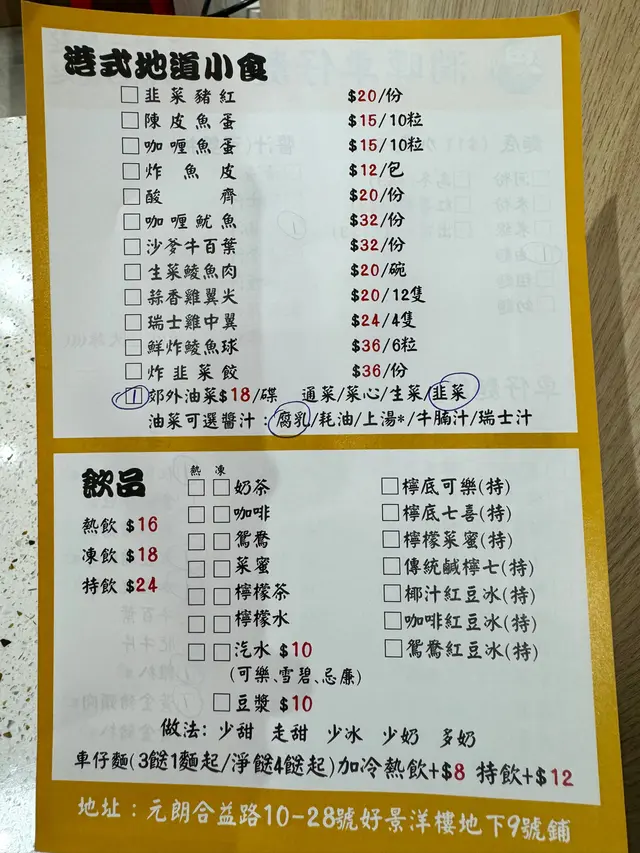 港式地道小食
韭菜豬紅 $20/份
陳皮魚蛋 $15/10粒
咖喱魚蛋 $15/10粒
炸魚皮 $12/包
酸齋 $20/份
咖喱魷魚 $32/份
沙爹牛百葉 $32/份
生菜鯪魚肉 $20/碗
蒜香雞翼尖 $20/12隻
瑞士雞中翼 $24/4隻
鮮炸鯪魚球 $36/6粒
炸韭菜餃 $36/份
1 郊外油菜$18/碟 通菜/菜心/生菜/韭菜
油菜可選醬汁：腐乳/耗油/上湯*/牛腩汁/瑞士汁
飲品
熱飲 $16
凍飲 $18
特飲 $24
熱 凍
奶茶
咖啡
鴛鴦
菜蜜
檸檬茶
檸檬水
汽水 $10
(可樂、雪碧、忌廉)
豆漿 $10
檸底可樂(特)
檸底七喜(特)
檸檬菜蜜(特)
傳統鹹檸七(特)
椰汁紅豆冰(特)
咖啡紅豆冰(特)
鴛鴦紅豆冰(特)
做法: 少甜 走甜 少冰 少奶 多奶
車仔麵(3餸1麵起/淨餸4餸起)加冷熱飲+$8 特飲+$12
地址：元朗合益路10-28號好景洋樓地下9號鋪